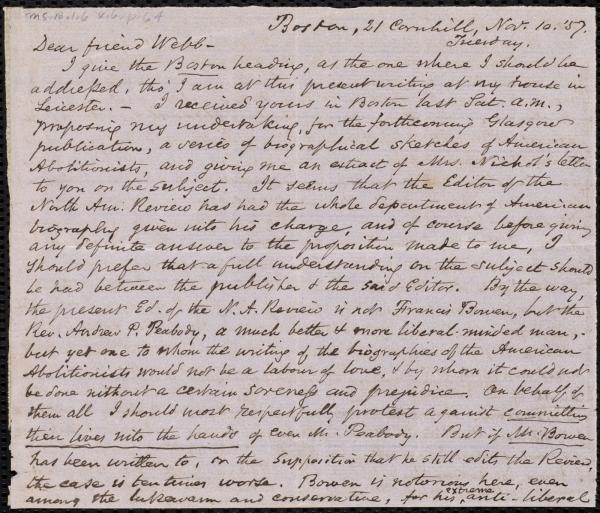 ms.A.1.6 v.6. p.64
Boston, 21 Cornhill, Nov. 10. '57.
Tuesday.
Dear friend Webb—
I give the Boston heading, as the one where I should be
addressed, tho' I am at this present writing at my house in
Leicester.— I received yours in Boston last Sat. a.m.,
proposing my undertaking, for the forthcoming Glasgow
publication, a series of biographical sketches of American
Abolitionists, and giving me an extract of Mrs. Nichol's letter
to you on the subject. It seems that the Editor of the
North Am. Review has had the whole department of American
biography given into his charge, and of course before giving
any definite answer to the proposition made to me, I
should prefer that a full understanding on the subject should
be had between the publisher & the said Editor. By the way,
the present Ed. of the N. A. Review is not Francis Bowen, but the
Rev. Andrew P. Peabody, a much better & more liberal-minded man,-
but yet one to whom the writing of the biographies of the American
Abolitionists would not be a labour of love, & by whom it could not
be done without a certain soreness and prejudice. On behalf of
them all I should most respectfully protest against committing
their lives into the hands of even Mr. Peabody. But if Mr. Bowen
has been written to, on the supposition that he still edits the Review,
the case is ten times worse. Bowen is notorious here, even
among the lukewarm and conservative, for his extreme anti-liberal